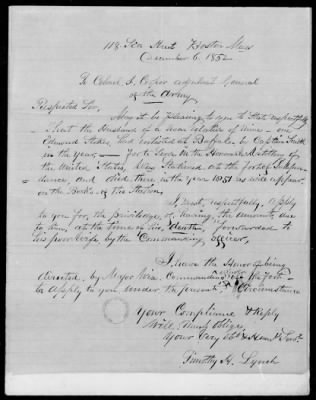 118 Sea Street Boston Mass
December 6. 1852
To Colonel S. Cooper adjutant General
of the Army
Respected Sir,
May it be pleasing to you to State respectfully
that the Husband of a near relative of mine - one
Edmund Stokes, had enlisted at Buffalo by Captain
in the year, for to Serve in the Second Artillery of
the United States, was Stationed at the Fort of
and died there in the year 1851 as will appear
on the Books of the Station.
I must, respectfully, apply
to you for the priviledge, of having the amounts due
to him, at the time of his death, forwarded to
his poor wife by the Commanding officer,
I have the Honor of being
directed, by Major Commanding officer of the Fort
to apply to you under the present Circumstance
Your Compliance & Reply
Will Much Oblige,
Your Very Obt & Hum. Servt.
Timothy H. Lynch